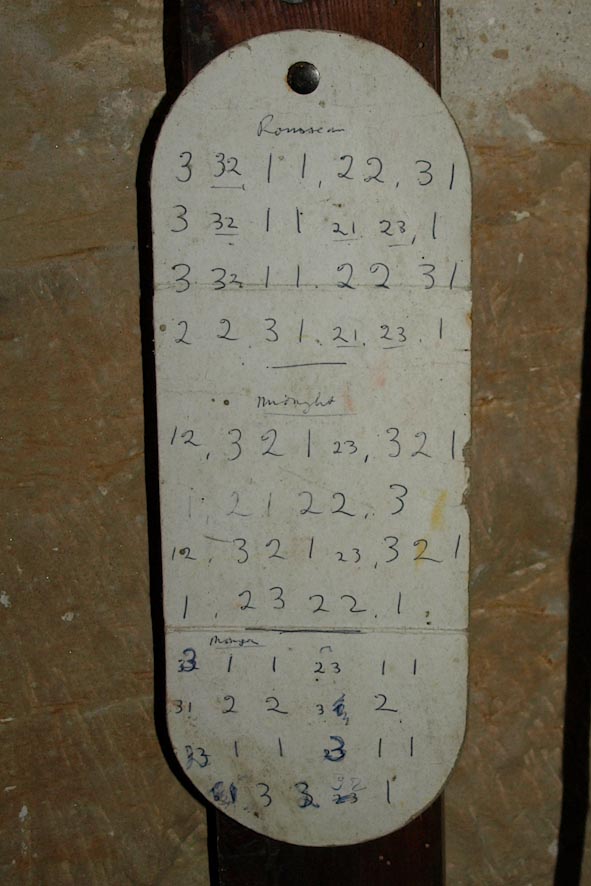 Rousseau
3 32 1 1, 2 2, 3 1
3 32 1 1 21 23, 1
3 32 1 1. 2 2 3 1
2 2 3 1. 21. 23. 1
Midnight
12, 3 2 1 23, 3 2 1
1, 2 1 2 2, 3
12, 3 2 1 23, 3 2 1
1, 2 3 2 2, 1
1 1 23 1 1
31 2 2 2
23 1 1 3 1 1
3 3 1